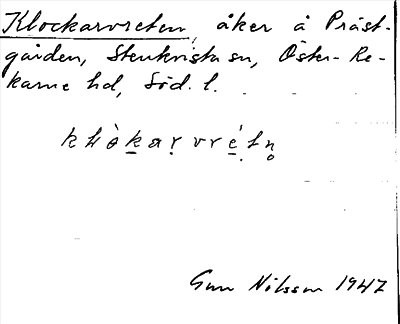 Klockarvreten, åker å Präst-
gården, Stenkvista sn, Öster-Re-
karne hd, Söd. l.
Gun Nilsson 1947